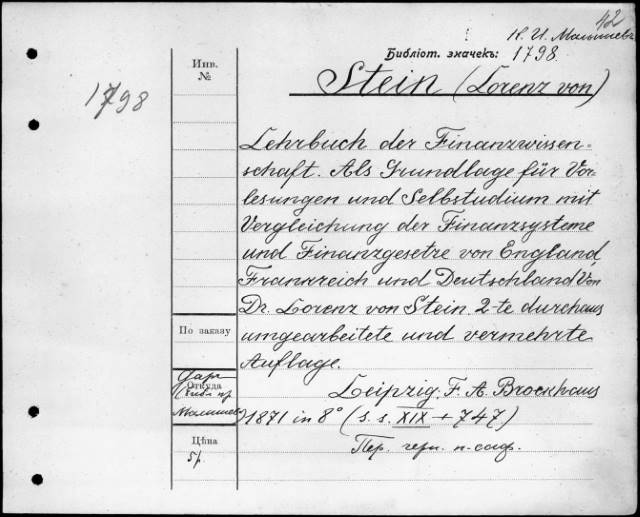 42
Н. И. Малышевъ
Библіот. значекъ: 1798.
Инв.
№
1798
Stein (Lorenz von)
Lehrbuch der Finanzwissen-
schaft. Als Grundlage für Vor-
lesungen und Selbstudium mit
Vergleichung der Finanzsysteme
und Finanzgesetze von England,
Frankreich und Deutschland. Von
Dr. Lorenz von Stein. 2-te durchaus
По заказу
umgearbeitete und vermehrte
Auflage.
Даръ
Откуда
Малышев
Leipzig. F. A. Brockhaus
1871 in 8° (s. s. XIX + 747)
Цѣна
5 р.
Пер. черн. п-саф.